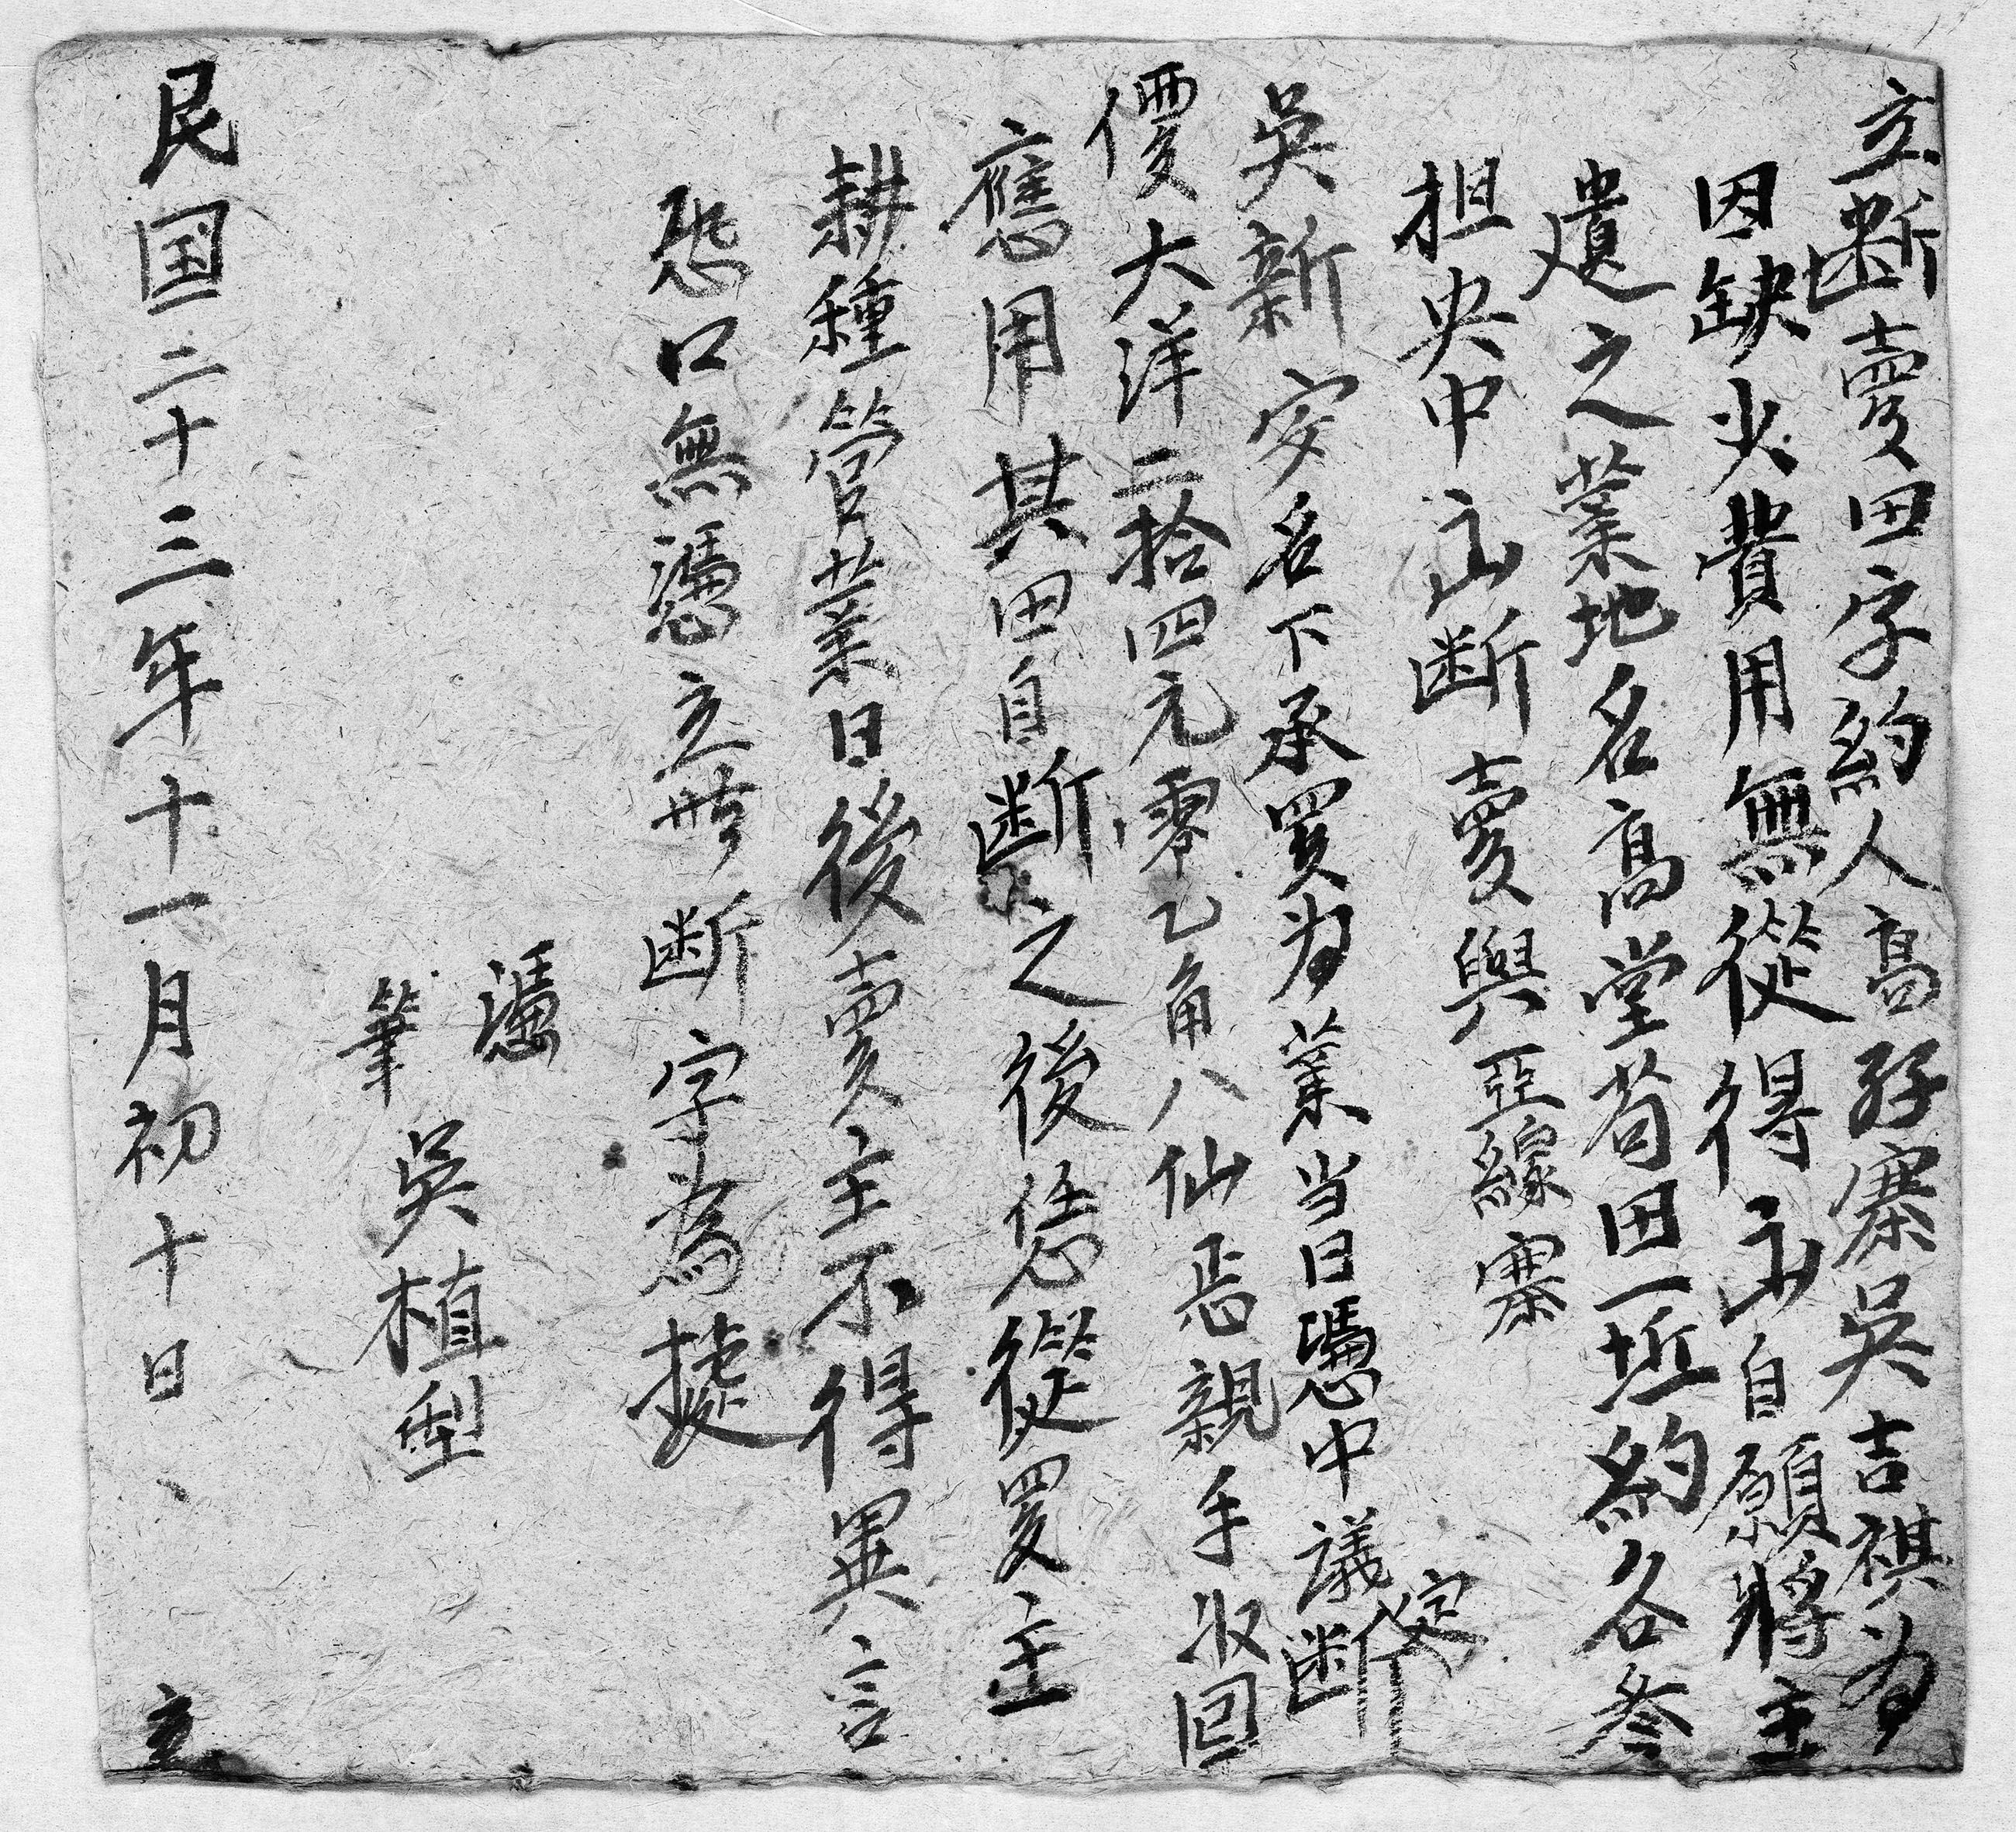 立斷賣田字約人高孖寨吳吉祺为
因缺少費用無從得出自願將主
遺之業地名高堂苟田一坵約谷叁
担央中出断賣與亞緣寨
吳新安名下承買为業当日憑中議定断
價大洋二拾四元零乙角八仙焉親手収回
應用其田自断之後恁從買主
耕種管業日後賣主不得異言
恐口無憑立此断字為據
憑
筆 吳植型
民国二十三年十一月初十日、立